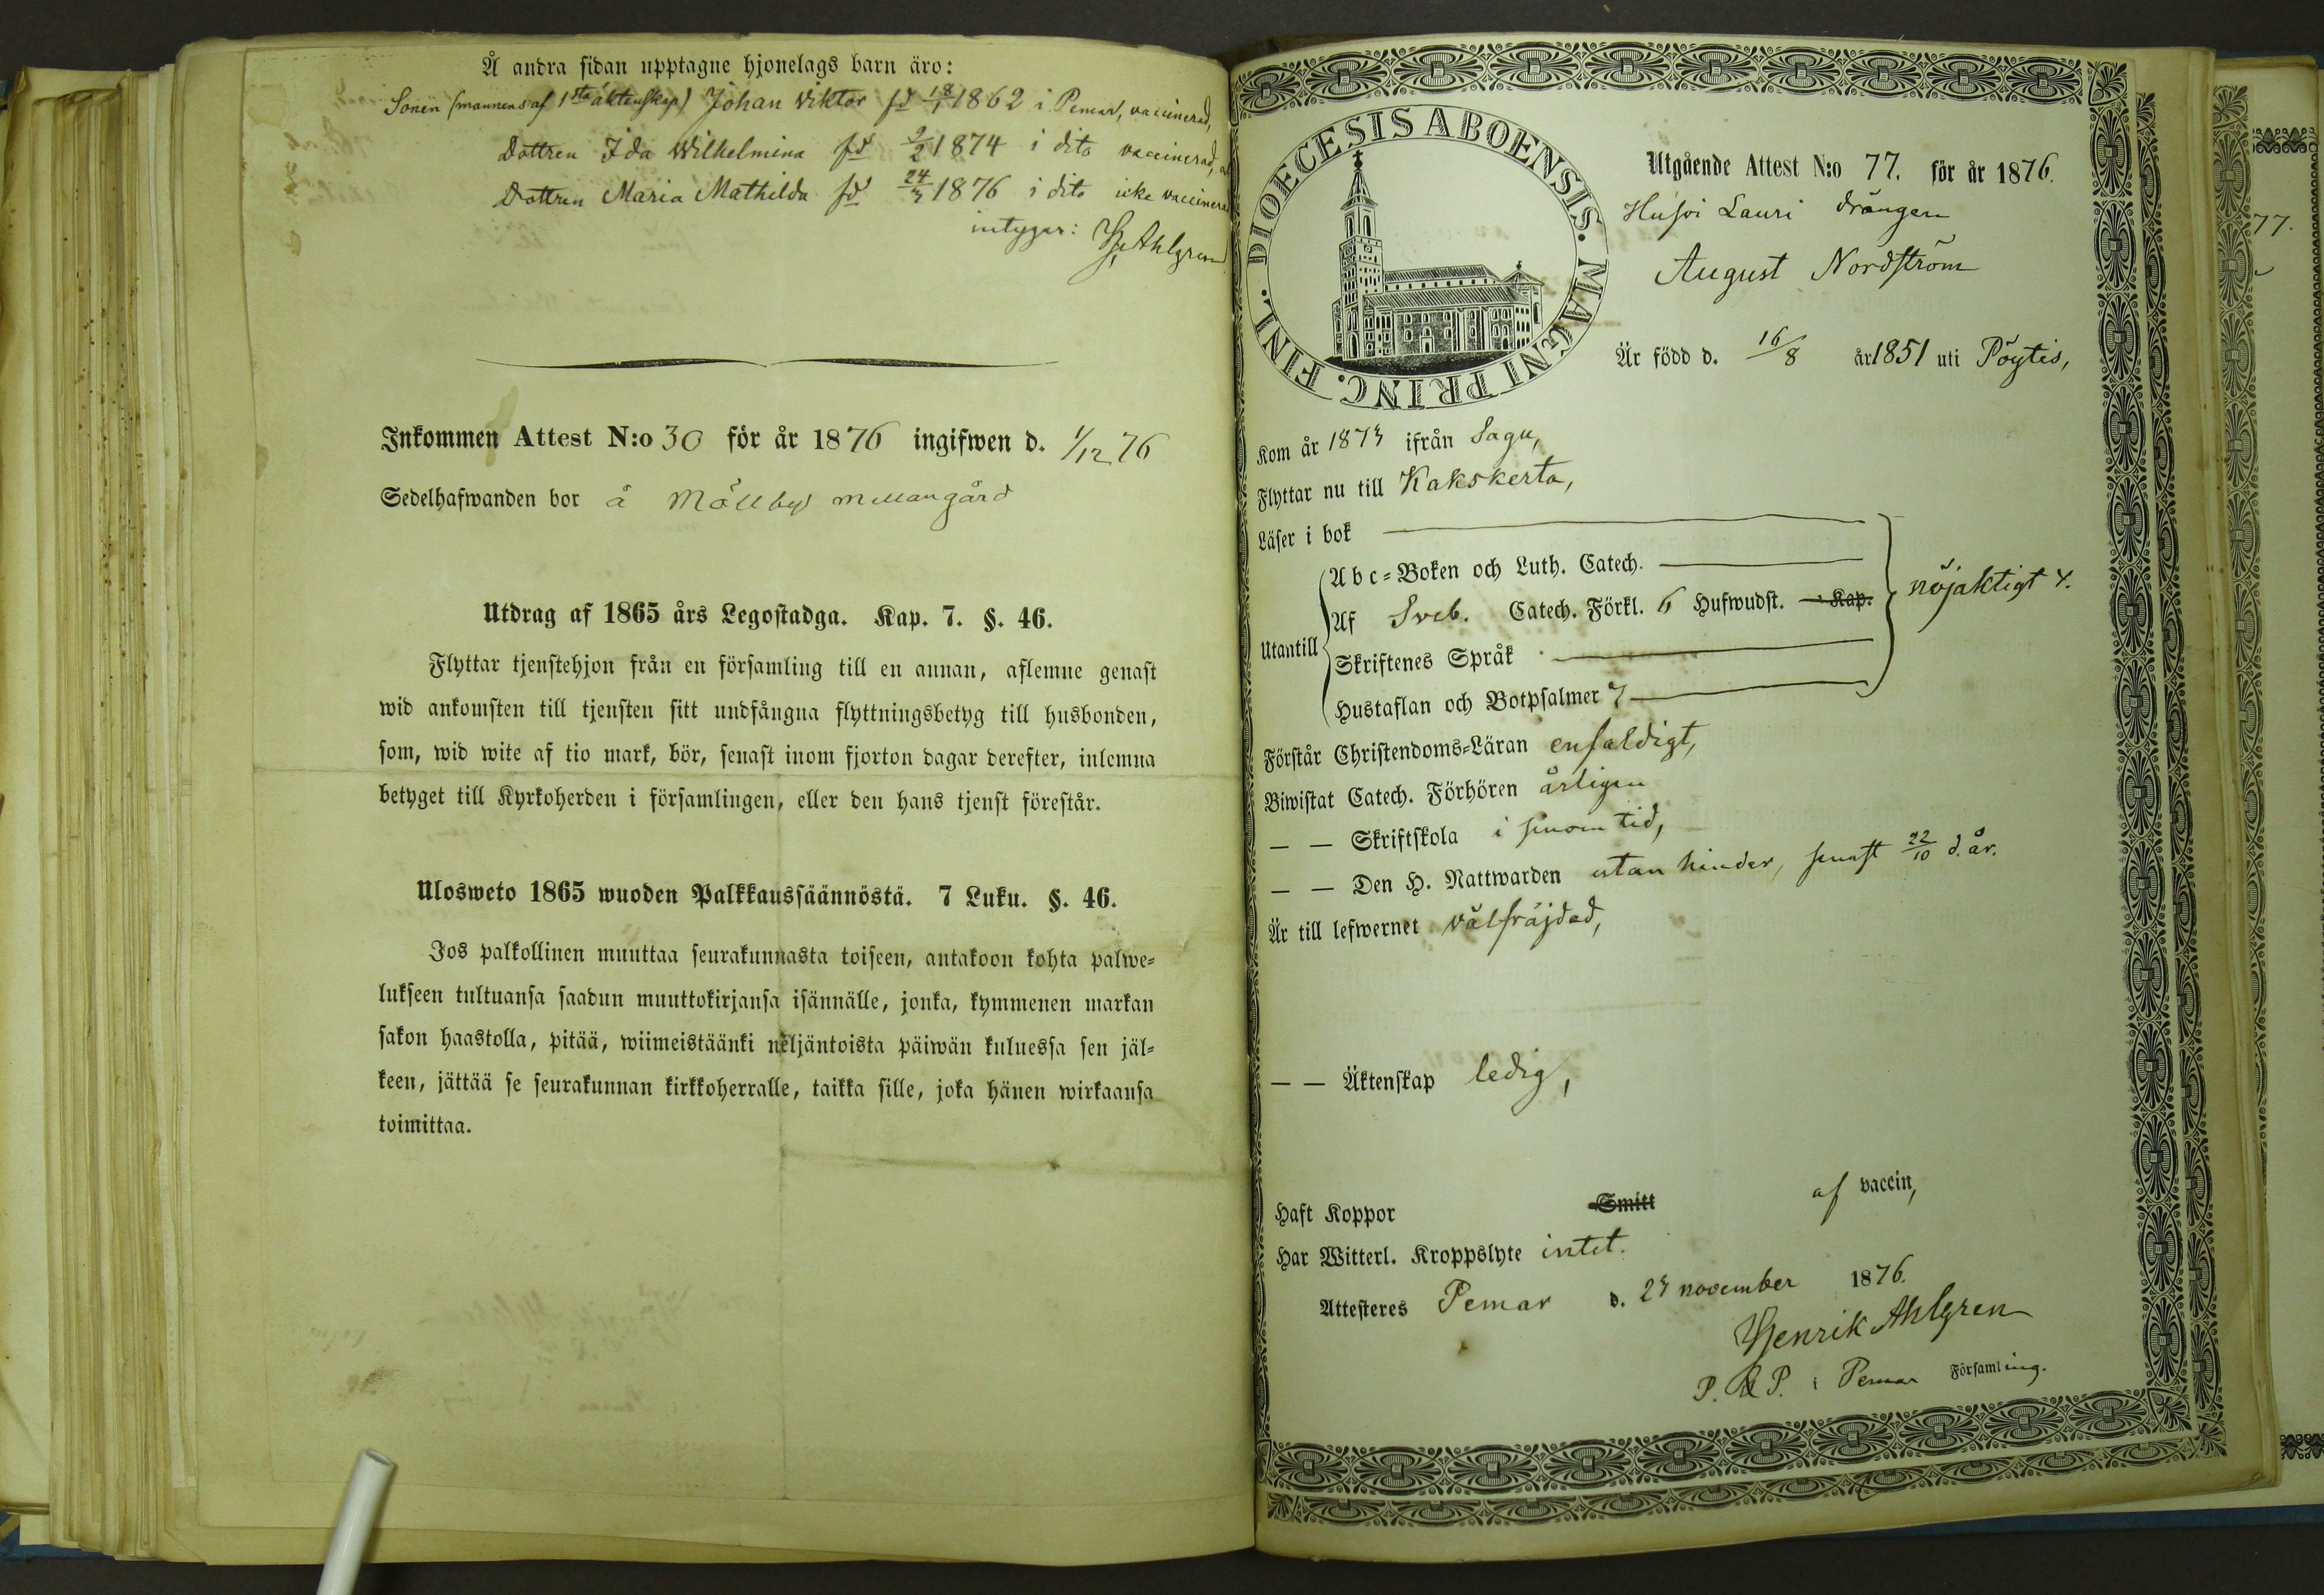 Å andra sidan upptagne hjonelags barn äro:
Sonen (mannens af 1sta äktenskap) Johan Viktor fd 18/1 1862 i Pemar, vaccinerad,
Dottren Ida Wilhelmina fd 9/2 1874 i dito vaccinerad,
Dottren Maria Mathilda fd 24/3 1876 i dito icke vaccinerad
intygar: Hk Ahlgren
Inkommen Attest N:o 30 för år 1876 ingifwen d. 1/12 76
Sedelhafwanden bor å Mällby mellangård
Utdrag af 1865 års Legostadga. Kap. 7. §. 46.
Flyttar tjenstehjon från en församling till en annan, aflemne genast
wid ankomsten till tjensten sitt undfångna flyttningsbetyg till husbonden,
som, wid wite af tio mark, bör, senast inom fjorton dagar derefter, inlemna
betyget till Kyrkoherden i församlingen, eller den hans tjenst förestår.
Ulosweto 1865 wuoden Palkkaussäännöstä. 7 Luku. §. 46.
Jos palkollinen muuttaa seurakunnasta toiseen, antakoon kohta palwe=
lukseen tultuansa saadun muuttokirjansa isännälle, jonka, kymmenen markan
sakon haastolla, pitää, wiimeistäänki neljäntoista päiwän kuluessa sen jäl=
keen, jättää se seurakunnan kirkkoherralle, taikka sille, joka hänen wirkaansa
toimittaa.
DIOECESIS ABOENSIS. MAGNI PRINC. FINL.
Utgående Attest N:o 77. för år 1876.
Husoi Lauri drängen
August Nordström
Är född d. 16/8 år 1851 uti Pöytis,
Kom år 1873 ifrån Sagu,
Flyttar nu till Kakskerta,
Läser i bok
Utantill
Abc=Boken och Luth. Catech.
Af Sveb. Catech. Förkl. 6 Hufwudst. Kap.
nöjaktigt
Skriftenes Språk
Hustaflan och Botpsalmer 7
Förstår Christendoms=Läran enfaldigt,
Biwistat Catech. Förhören årligen
— — Skriftskola i sinom tid,
— — Den H. Nattwarden utan hinder, senast 22/10 d. år.
Är till lefwernet välfräjdad,
— — Äktenskap ledig,
Haft Koppor Smitt af vaccin,
Har Witterl. Kroppslyte intet.
Attesteres Pemar d. 23 november 1876.
Henrik Ahlgren
P. & P. i Pemar Församling.
77.